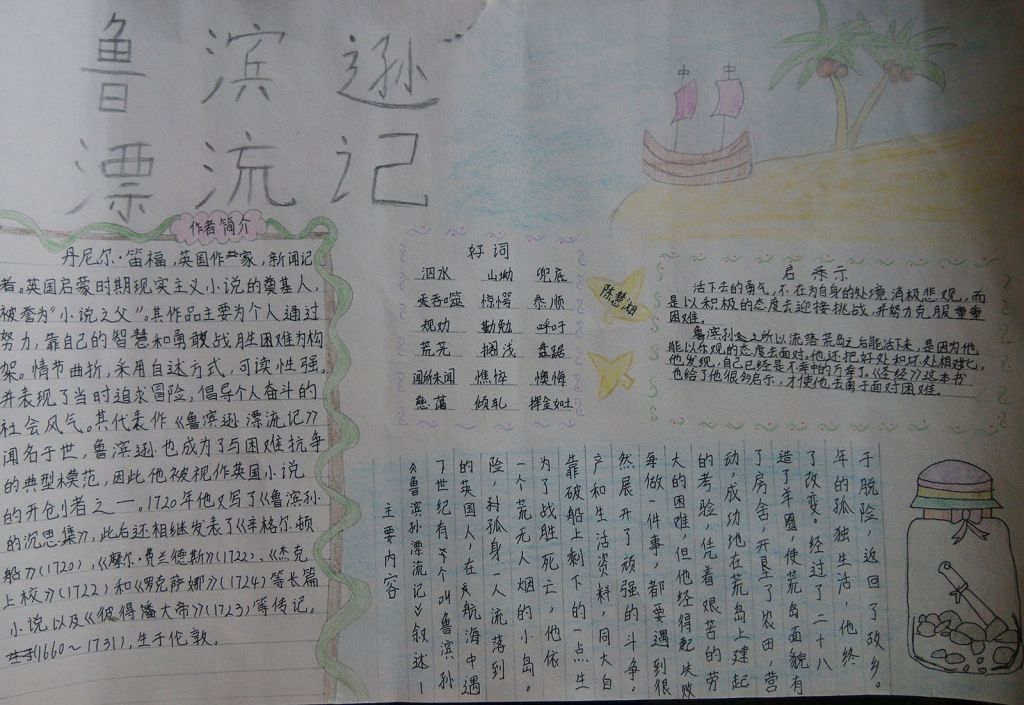 鲁滨逊
漂流记
作者简介
丹尼尔·笛福,英国作家,新闻记
者。英国启蒙时期现实主义小说的奠基人,
被誉为“小说之父”。其作品主要为个人通过
努力,靠自己的智慧和勇敢战胜困难为构
架。情节曲折,采用自述方式,可读性强。
并表现了当时追求冒险,倡导个人奋斗的
社会风气。其代表作《鲁滨逊漂流记》
闻名于世,鲁滨逊也成为了与困难抗争
的典型模范,因此他被视作英国小说
的开创者之一。1720年他又写了《鲁滨孙
的沉思集》,此后还相继发表了《辛格尔顿
船》(1720),《摩尔·费兰德斯》(1722)、《杰克
上校》(1722)和《罗克萨娜》(1724)等长篇
小说,以及《彼得潘大帝》(1723)等传记。
(1660~1731),生于伦敦。
好词
泅水 山坳 兜底
吞噬 惊愕 恭顺
规劝 勤勉 呼吁
荒芜 搁浅 盘踞
闻所未闻 憔悴 懊悔
慰藉 倾轧 挥金如土
陈慧
启示
活下去的勇气,不在为自身的处境消极悲观,而
是以积极的态度去迎接挑战,并努力克服重重
困难。
鲁滨孙之所以流落荒岛之后能活下来,是因为他
能以乐观的态度去面对。他还把好处和坏处相对比,
他发现,自己已经是不幸中的万幸了。《圣经》这本书
也给了他很多启示,才使他去勇于面对困难。
主要内容
《鲁滨孙漂流记》叙述一
了世纪有个叫鲁滨孙
的英国人,在航海中遇
险,孤身一人流落到
一个荒无人烟的小岛。
为了战胜死亡,他依
靠破船上剩下的一点生
产和生活资料,同大自
然展开了顽强的斗争。
每做一件事,都要遇到很
大的困难,但他经得起失败
的考验,凭着艰苦的劳
动,成功地在荒岛上建起
了房舍,开垦了农田,营
造了羊圈,使荒岛面貌有
了改变。经过了二十八
年的孤独生活,他终
于脱险,返回了故乡。